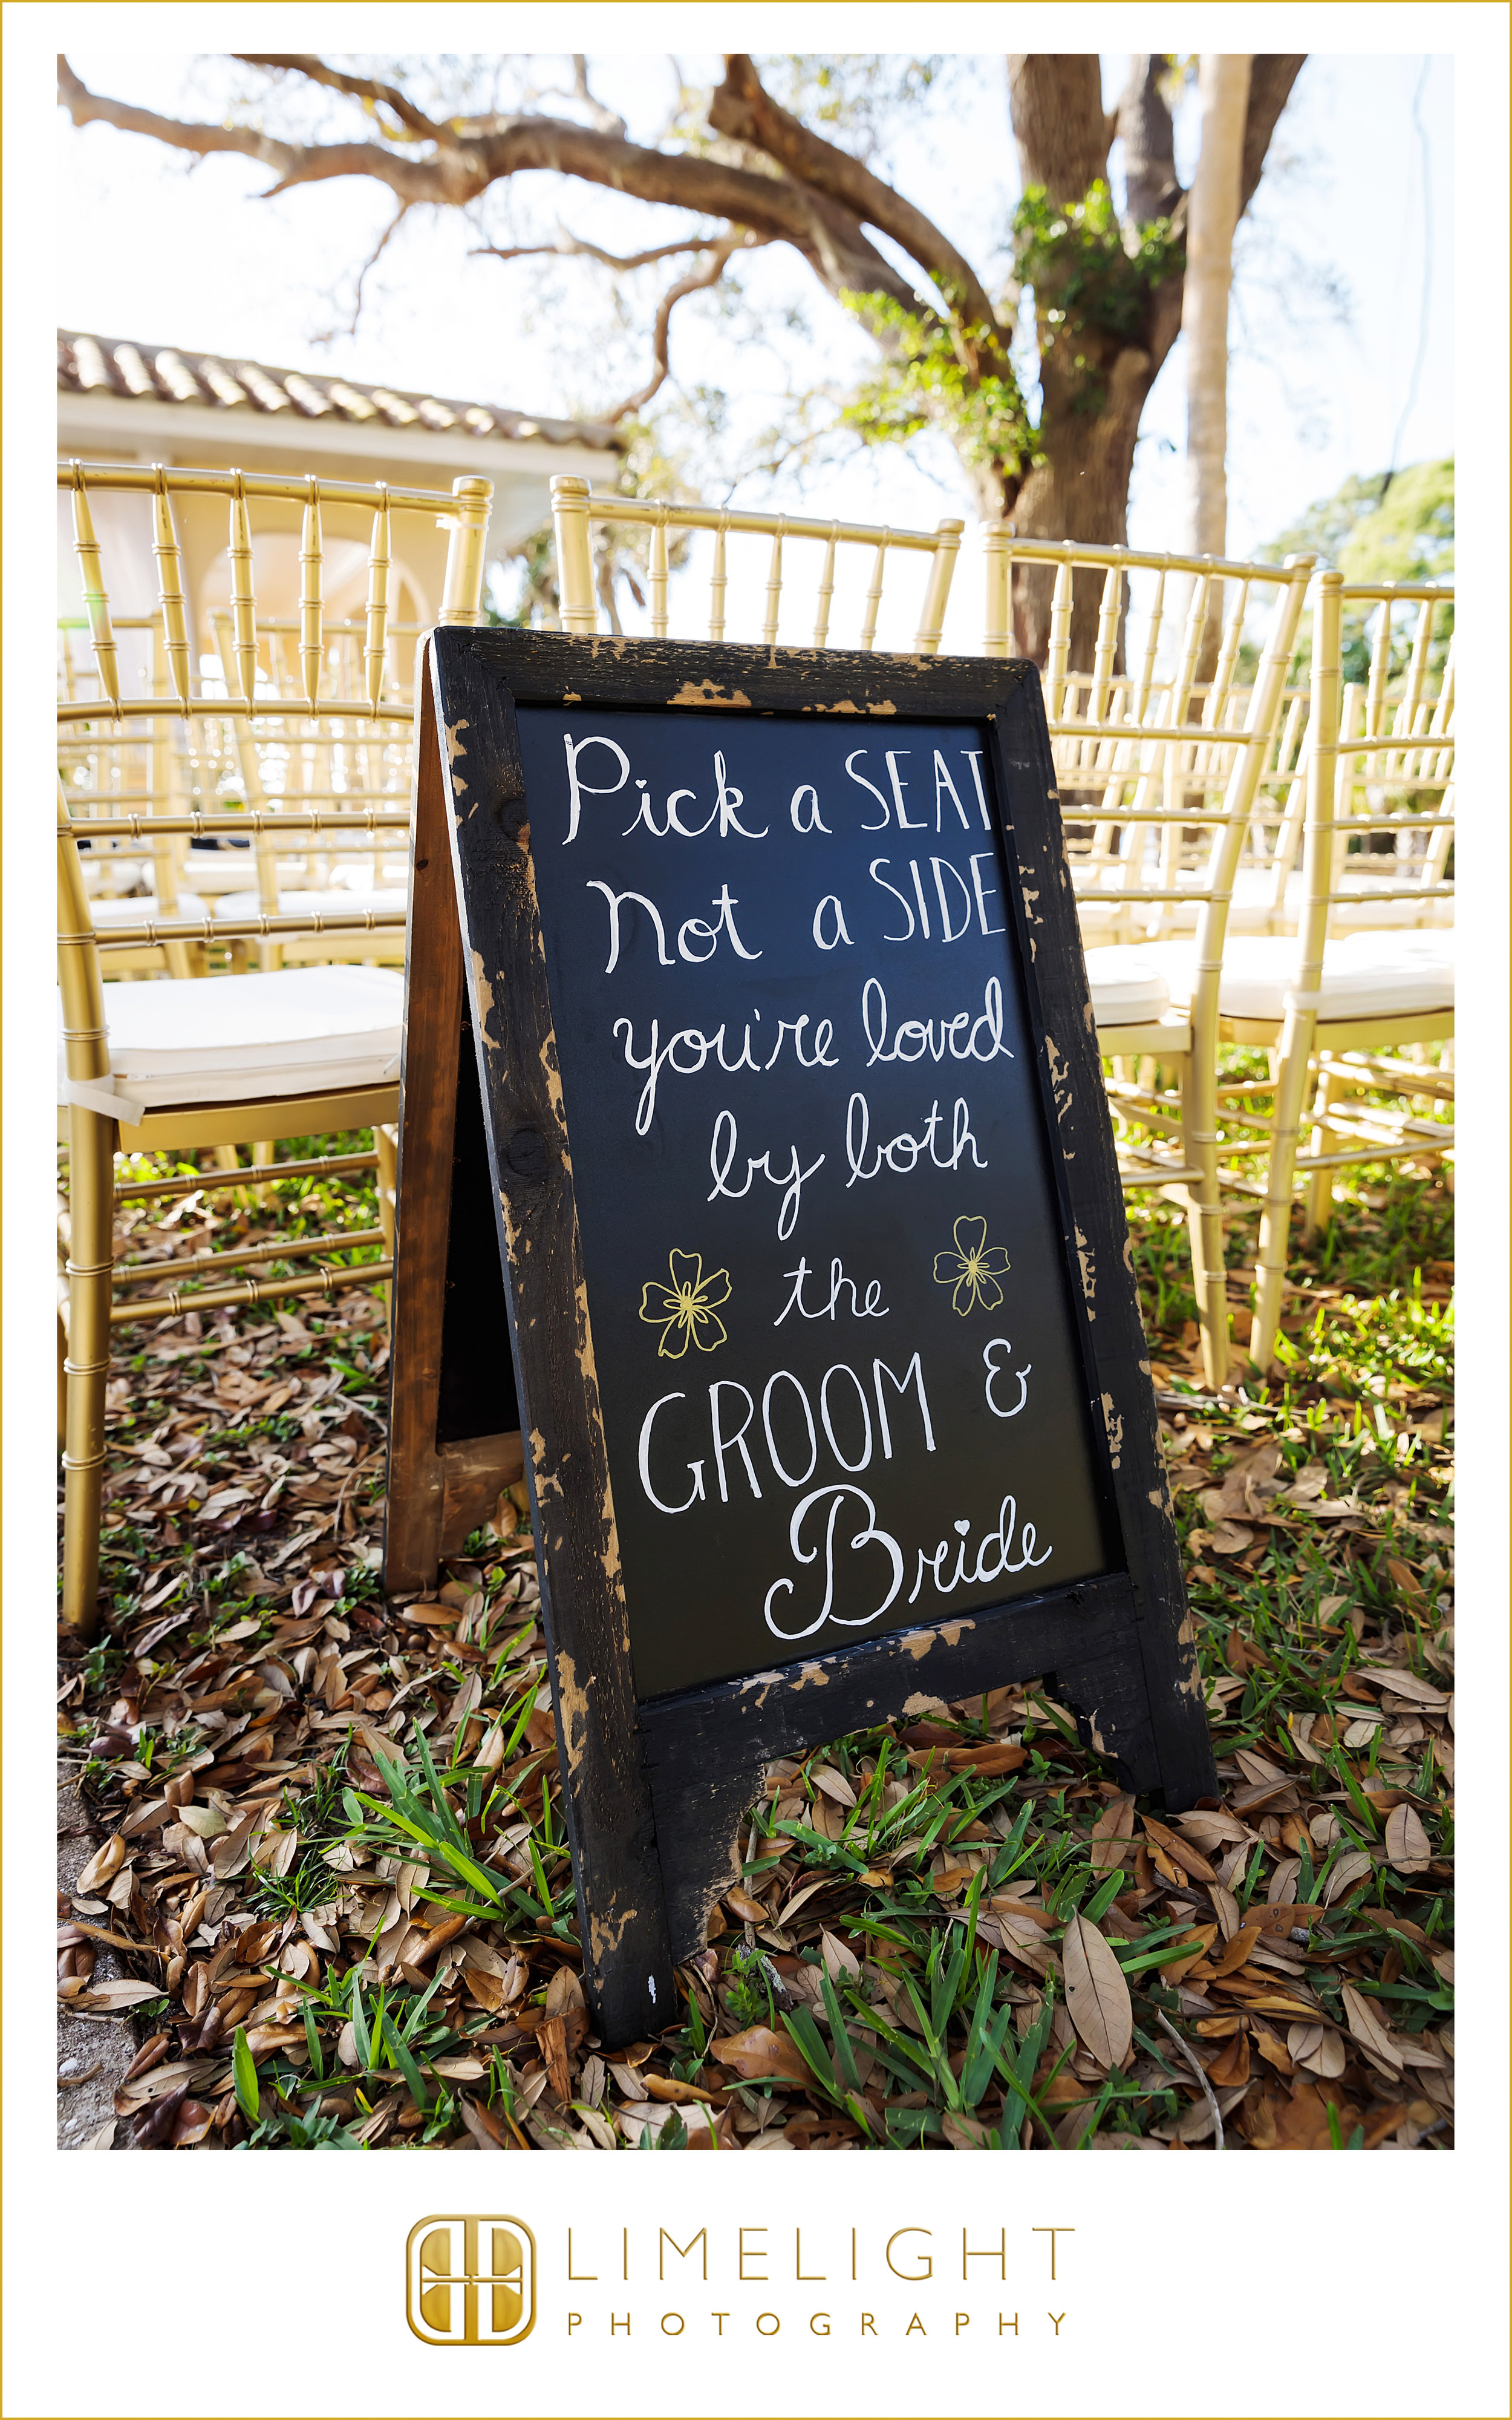 Pick a SEAT
Not a SIDE
you're loved
by both
the
GROOM &
Bride
LIMELIGHT
PHOTOGRAPHY